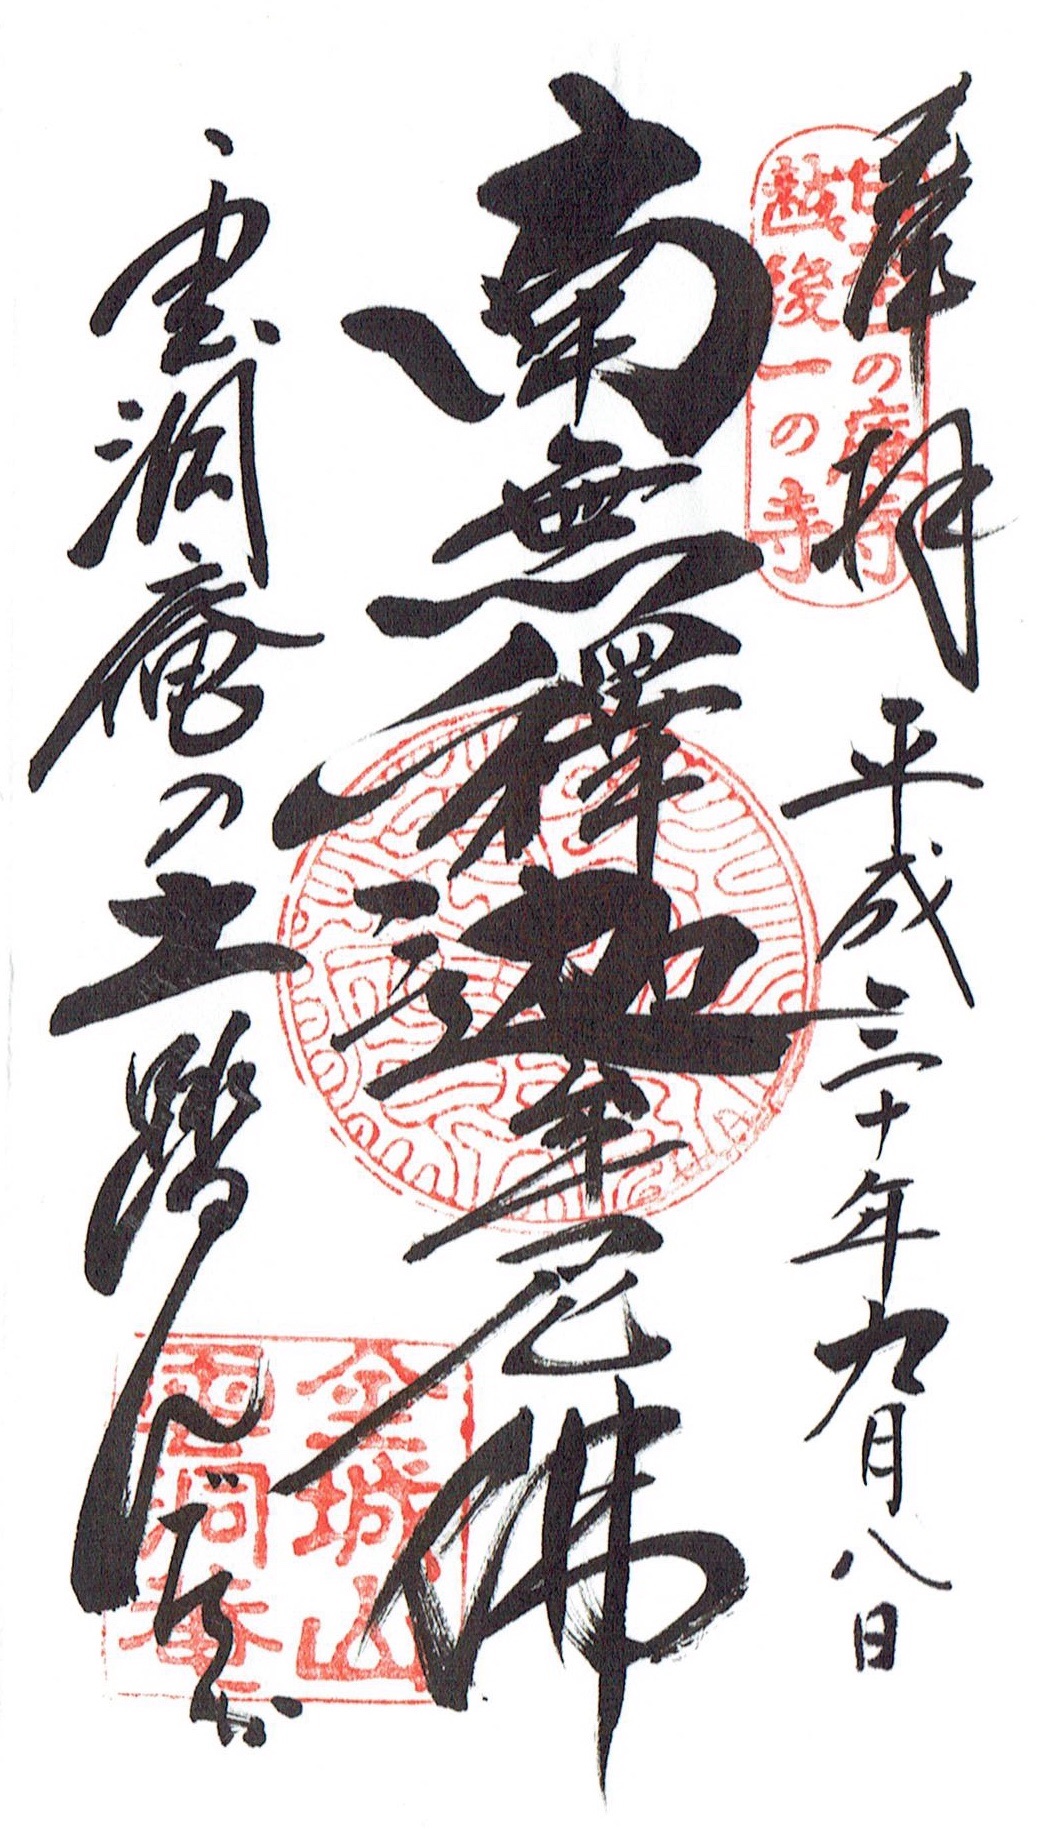 奉拝 平成三十年九月八日
日本一の庵寺
越後一の寺
南無釋迦牟尼佛
雲洞庵の土踏んだか
金城山
雲洞庵